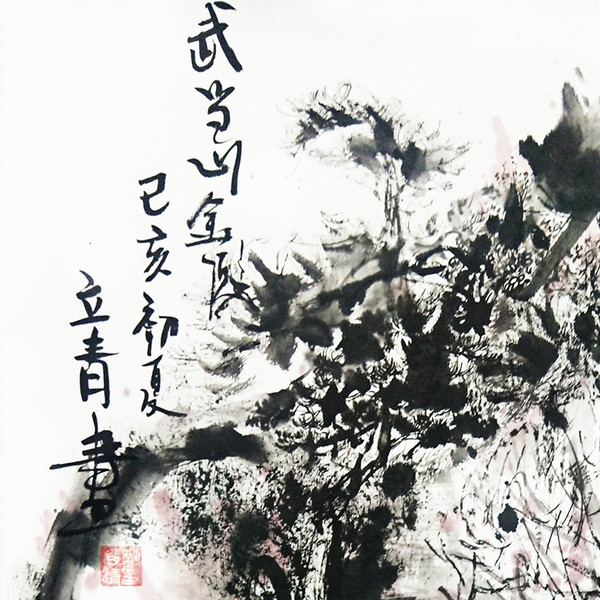 武当山金殿
己亥初夏
立青画